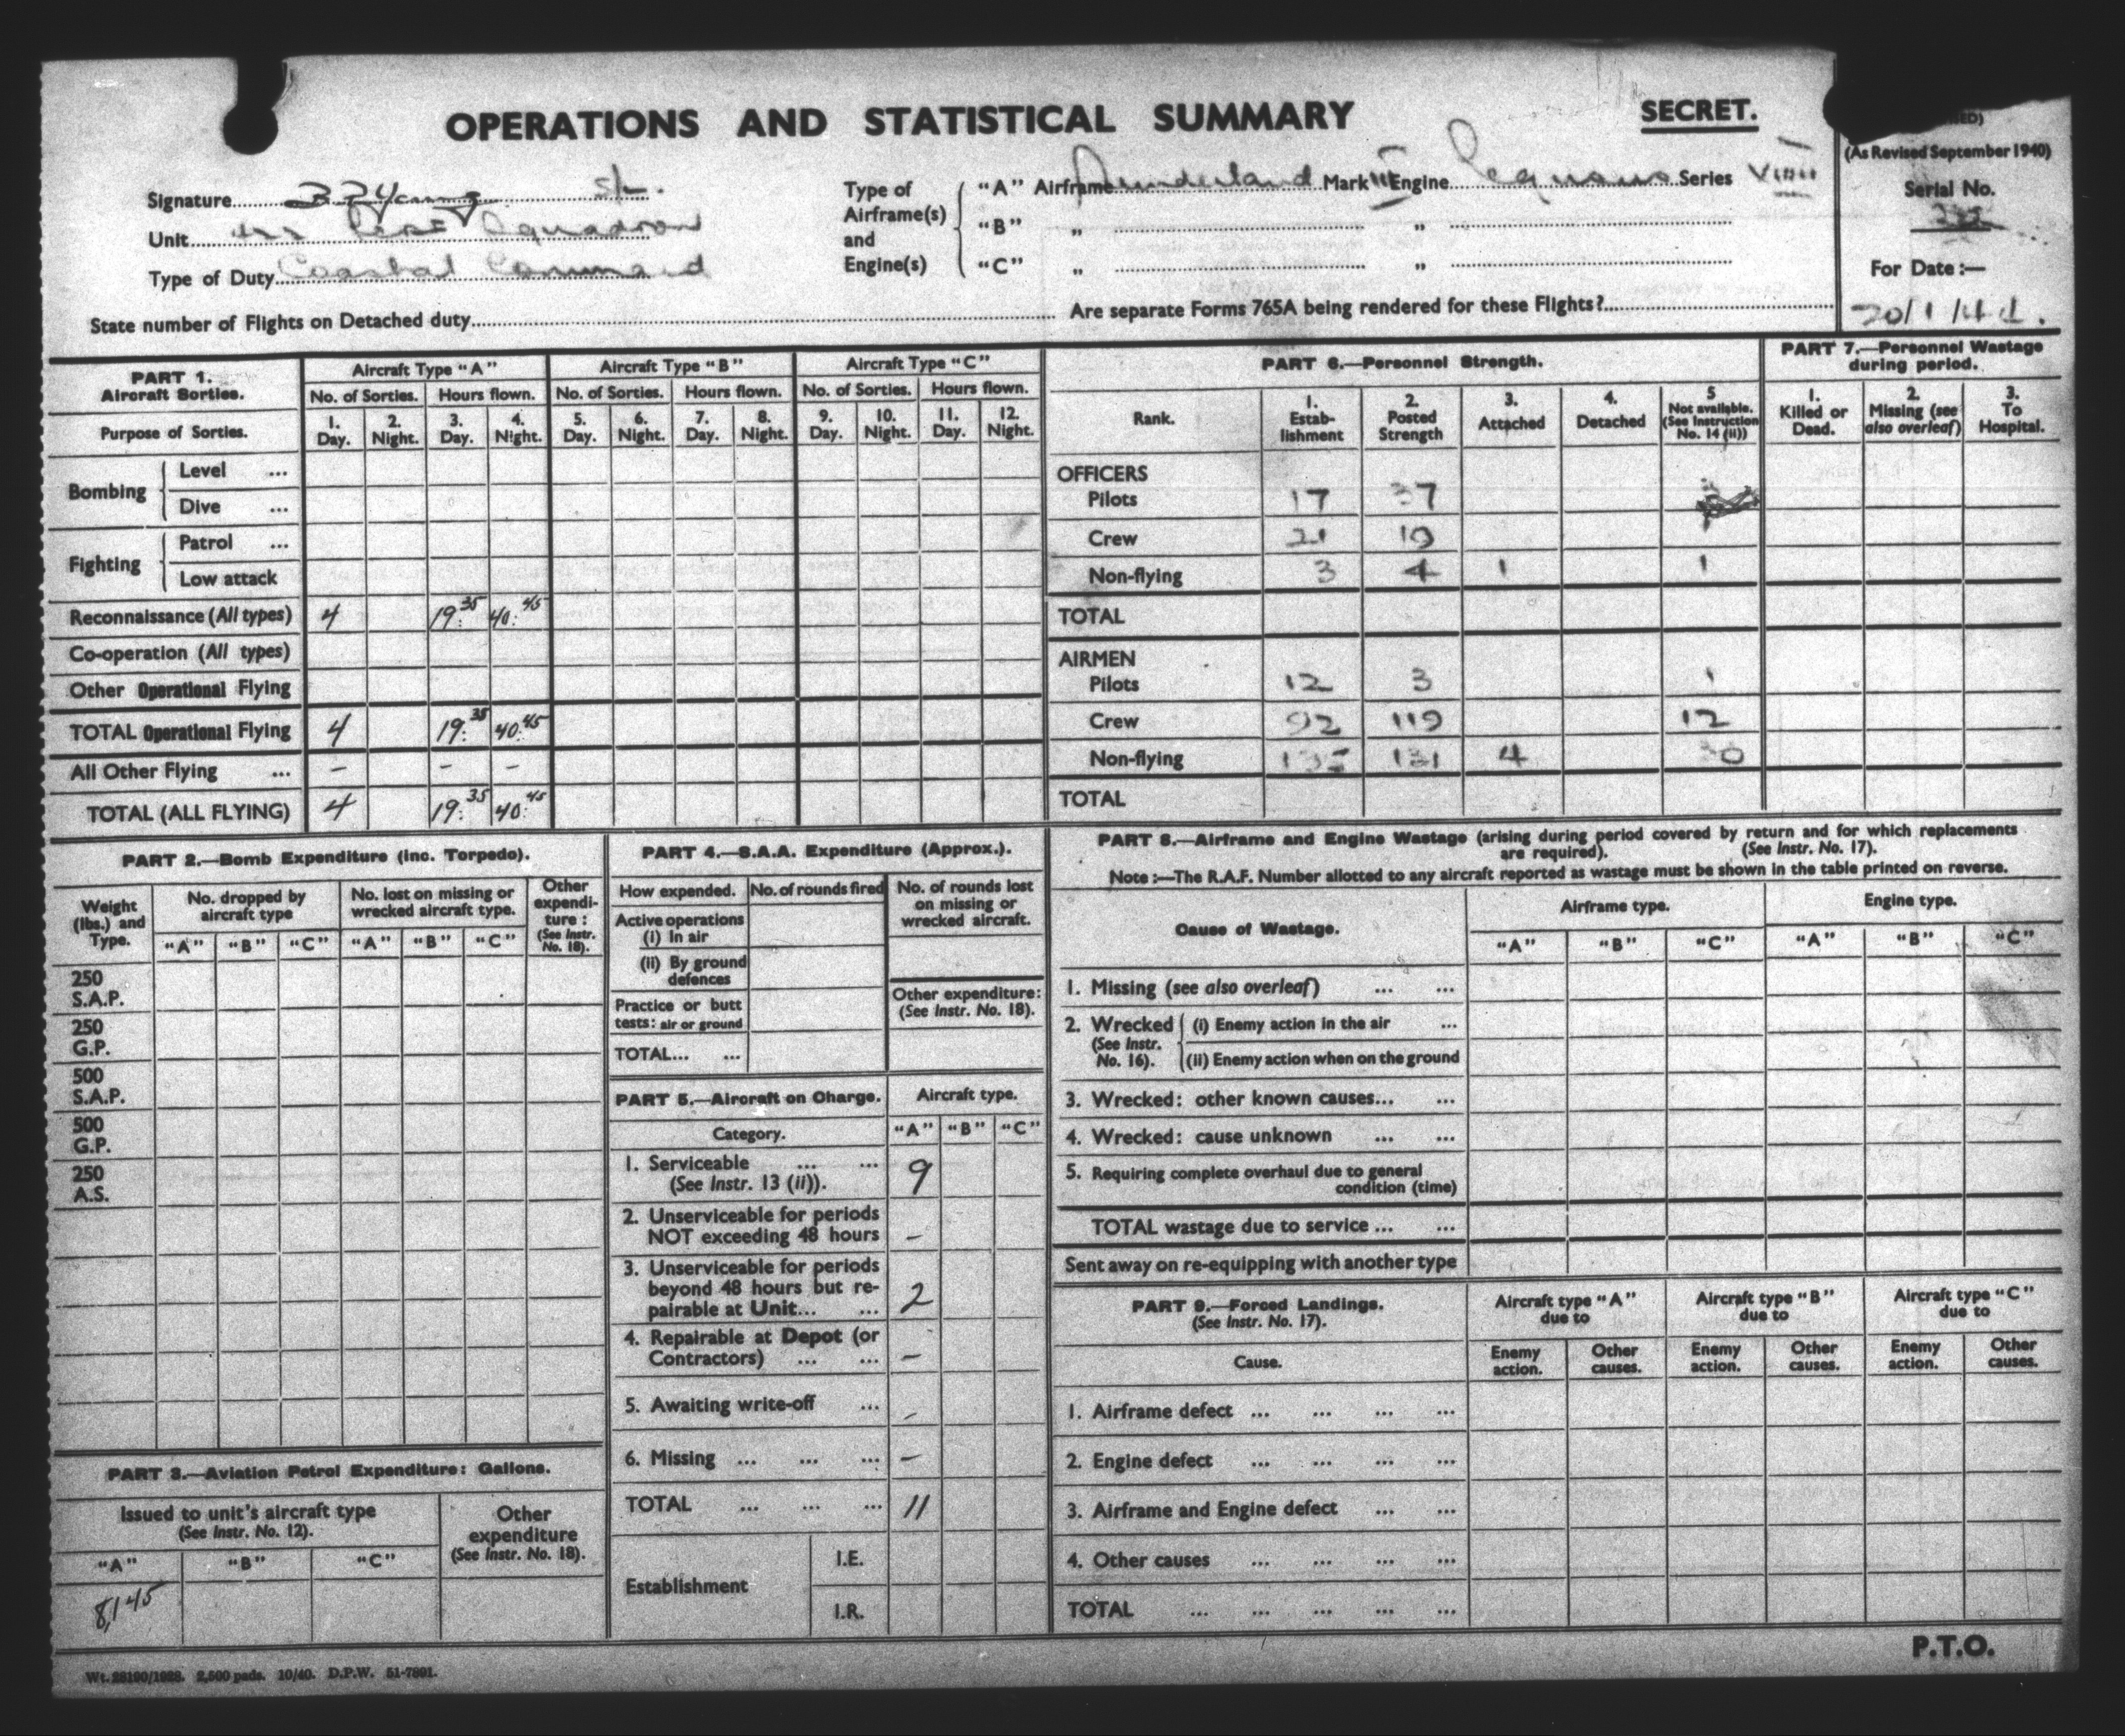 OPERATIONS AND STATISTICAL SUMMARY
SECRET.
(As Revised September 1940)
Serial No.
For Date:—
20/1/44.
Signature S/L.
Unit Squadron
Type of Duty Coastal Command
State number of Flights on Detached duty
Type of Airframe(s) and Engine(s)
"A" Airframe Sunderland Mark III Engine Pegasus Series XVIII
"B" " "
"C" " "
Are separate Forms 765A being rendered for these Flights?
PART 1.
Aircraft Sorties.
Aircraft Type "A" Aircraft Type "B" Aircraft Type "C"
No. of Sorties. Hours flown. No. of Sorties. Hours flown. No. of Sorties. Hours flown.
Purpose of Sorties.
1. Day. 2. Night. 3. Day. 4. Night. 5. Day. 6. Night. 7. Day. 8. Night. 9. Day. 10. Night. 11. Day. 12. Night.
Bombing
Level ...
Dive ...
Fighting
Patrol ...
Low attack
Reconnaissance (All types) 4 19:35 40:45
Co-operation (All types)
Other Operational Flying
TOTAL Operational Flying 4 19:35 40:45
All Other Flying ... – – –
TOTAL (ALL FLYING) 4 19:35 40:45
PART 6.—Personnel Strength.
Rank.
1. Estab-lishment
2. Posted Strength
3. Attached
4. Detached
5 Not available. (See Instruction No. 14 (ii))
OFFICERS
Pilots 17 37
Crew 21 19
Non-flying 3 4 1 1
TOTAL
AIRMEN
Pilots 12 3 1
Crew 92 119 12
Non-flying 131 4 30
TOTAL
PART 7.—Personnel Wastage during period.
1. Killed or Dead.
2. Missing (see also overleaf)
3. To Hospital.
PART 2.—Bomb Expenditure (inc. Torpedo).
Weight (lbs.) and Type.
No. dropped by aircraft type
No. lost on missing or wrecked aircraft type.
Other expendi-ture: (See Instr. No. 18).
"A" "B" "C" "A" "B" "C"
250 S.A.P.
250 G.P.
500 S.A.P.
500 G.P.
250 A.S.
PART 3.—Aviation Petrol Expenditure: Gallons.
Issued to unit's aircraft type
(See Instr. No. 12).
Other expenditure (See Instr. No. 18).
"A" "B" "C"
8,145
PART 4.—S.A.A. Expenditure (Approx.).
How expended. No. of rounds fired No. of rounds lost on missing or wrecked aircraft.
Active operations
(i) In air
(ii) By ground defences
Practice or butt tests: air or ground
Other expenditure: (See Instr. No. 18).
TOTAL... ...
PART 5.—Aircraft on Charge. Aircraft type.
Category. "A" "B" "C"
1. Serviceable ... ... 9
(See Instr. 13 (ii)).
2. Unserviceable for periods
NOT exceeding 48 hours –
3. Unserviceable for periods
beyond 48 hours but re-
pairable at Unit... ... 2
4. Repairable at Depot (or
Contractors) ... ... –
5. Awaiting write-off ... –
6. Missing ... ... ... –
TOTAL ... ... ... 11
Establishment
I.E.
I.R.
PART 8.—Airframe and Engine Wastage (arising during period covered by return and for which replacements
are required). (See Instr. No. 17).
Note:—The R.A.F. Number allotted to any aircraft reported as wastage must be shown in the table printed on reverse.
Cause of Wastage. Airframe type. Engine type.
"A" "B" "C" "A" "B" "C"
1. Missing (see also overleaf) ... ...
2. Wrecked (See Instr. No. 16).
(i) Enemy action in the air ...
(ii) Enemy action when on the ground
3. Wrecked: other known causes... ...
4. Wrecked: cause unknown ... ...
5. Requiring complete overhaul due to general
condition (time)
TOTAL wastage due to service ... ...
Sent away on re-equipping with another type
PART 9.—Forced Landings.
(See Instr. No. 17).
Aircraft type "A" due to Aircraft type "B" due to Aircraft type "C" due to
Cause.
Enemy action. Other causes. Enemy action. Other causes. Enemy action. Other causes.
1. Airframe defect ... ... ... ...
2. Engine defect ... ... ... ...
3. Airframe and Engine defect ... ...
4. Other causes ... ... ... ...
TOTAL ... ... ... ... ...
P.T.O.
Wt. 28190/1928. 2,500 pads. 10/40. D.P.W. 51-7891.